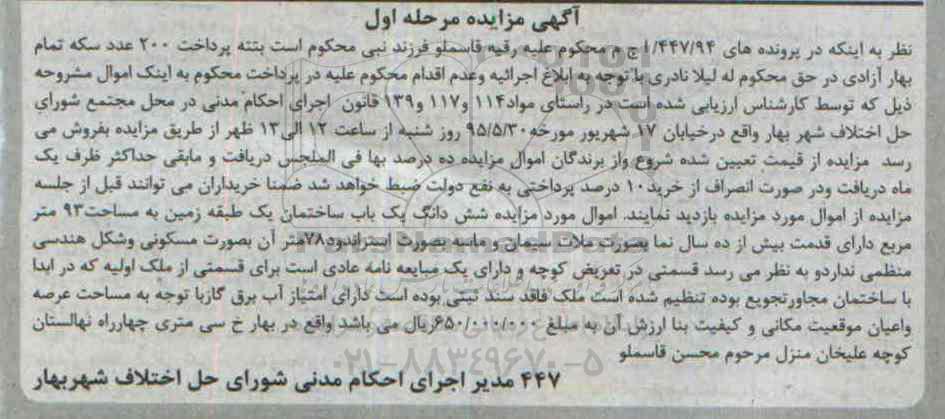 آگهی مزایده مرحله اول
نظر به اینکه در پرونده های ۱/۴۴۷/۹۴ج م محکوم علیه رقیه قاسملو فرزند نبی محکوم است بتته پرداخت ۲۰۰ عدد سکه تمام
بهار آزادی در حق محکوم له لیلا نادری با توجه به ابلاغ اجرائیه وعدم اقدام محکوم علیه در پرداخت محکوم به اینک اموال مشروحه
ذیل که توسط کارشناس ارزیابی شده است در راستای مواد۱۱۴ و۱۱۷ و۱۳۹ قانون اجرای احکام مدنی در محل مجتمع شورای
حل اختلاف شهر بهار واقع درخیابان ۱۷ شهریور مورخه۹۵/۵/۳۰ روز شنبه از ساعت ۱۲ الی۱۳ ظهر از طریق مزایده بفروش می
رسد مزایده از قیمت تعیین شده شروع واز برندگان اموال مزایده ده درصد بها فی المجلس دریافت و مابقی حداکثر ظرف یک
ماه دریافت ودر صورت انصراف از خرید۱۰ درصد پرداختی به نفع دولت ضبط خواهد شد ضمنا خریداران می توانند قبل از جلسه
مزایده از اموال مورد مزایده بازدید نمایند. اموال مورد مزایده شش دانگ یک باب ساختمان یک طبقه زمین به مساحت۹۳ متر
مربع دارای قدمت بیش از ده سال نما بصورت ملات سیمان و ماسه بصورت استراندود۷۸متر آن بصورت مسکونی وشکل هندسی
منظمی نداردو به نظر می رسد قسمتی در تعریض کوچه و دارای یک مبایعه نامه عادی است برای قسمتی از ملک اولیه که در ابدا
با ساختمان مجاورتجویع بوده تنظیم شده است ملک فاقد سند ثبتی بوده است دارای امتیاز آب برق گازبا توجه به مساحت عرصه
واعیان موقعیت مکانی و کیفیت بنا ارزش آن به مبلغ ۶۵۰/۰۰۰/۰۰۰ریال می باشد واقع در بهار خ سی متری چهارراه نهالستان
کوچه علیخان منزل مرحوم محسن قاسملو
۰۲۱-۸۸۳۴۹۶۷۰-۵
۴۴۷ مدیر اجرای احکام مدنی شورای حل اختلاف شهربهار